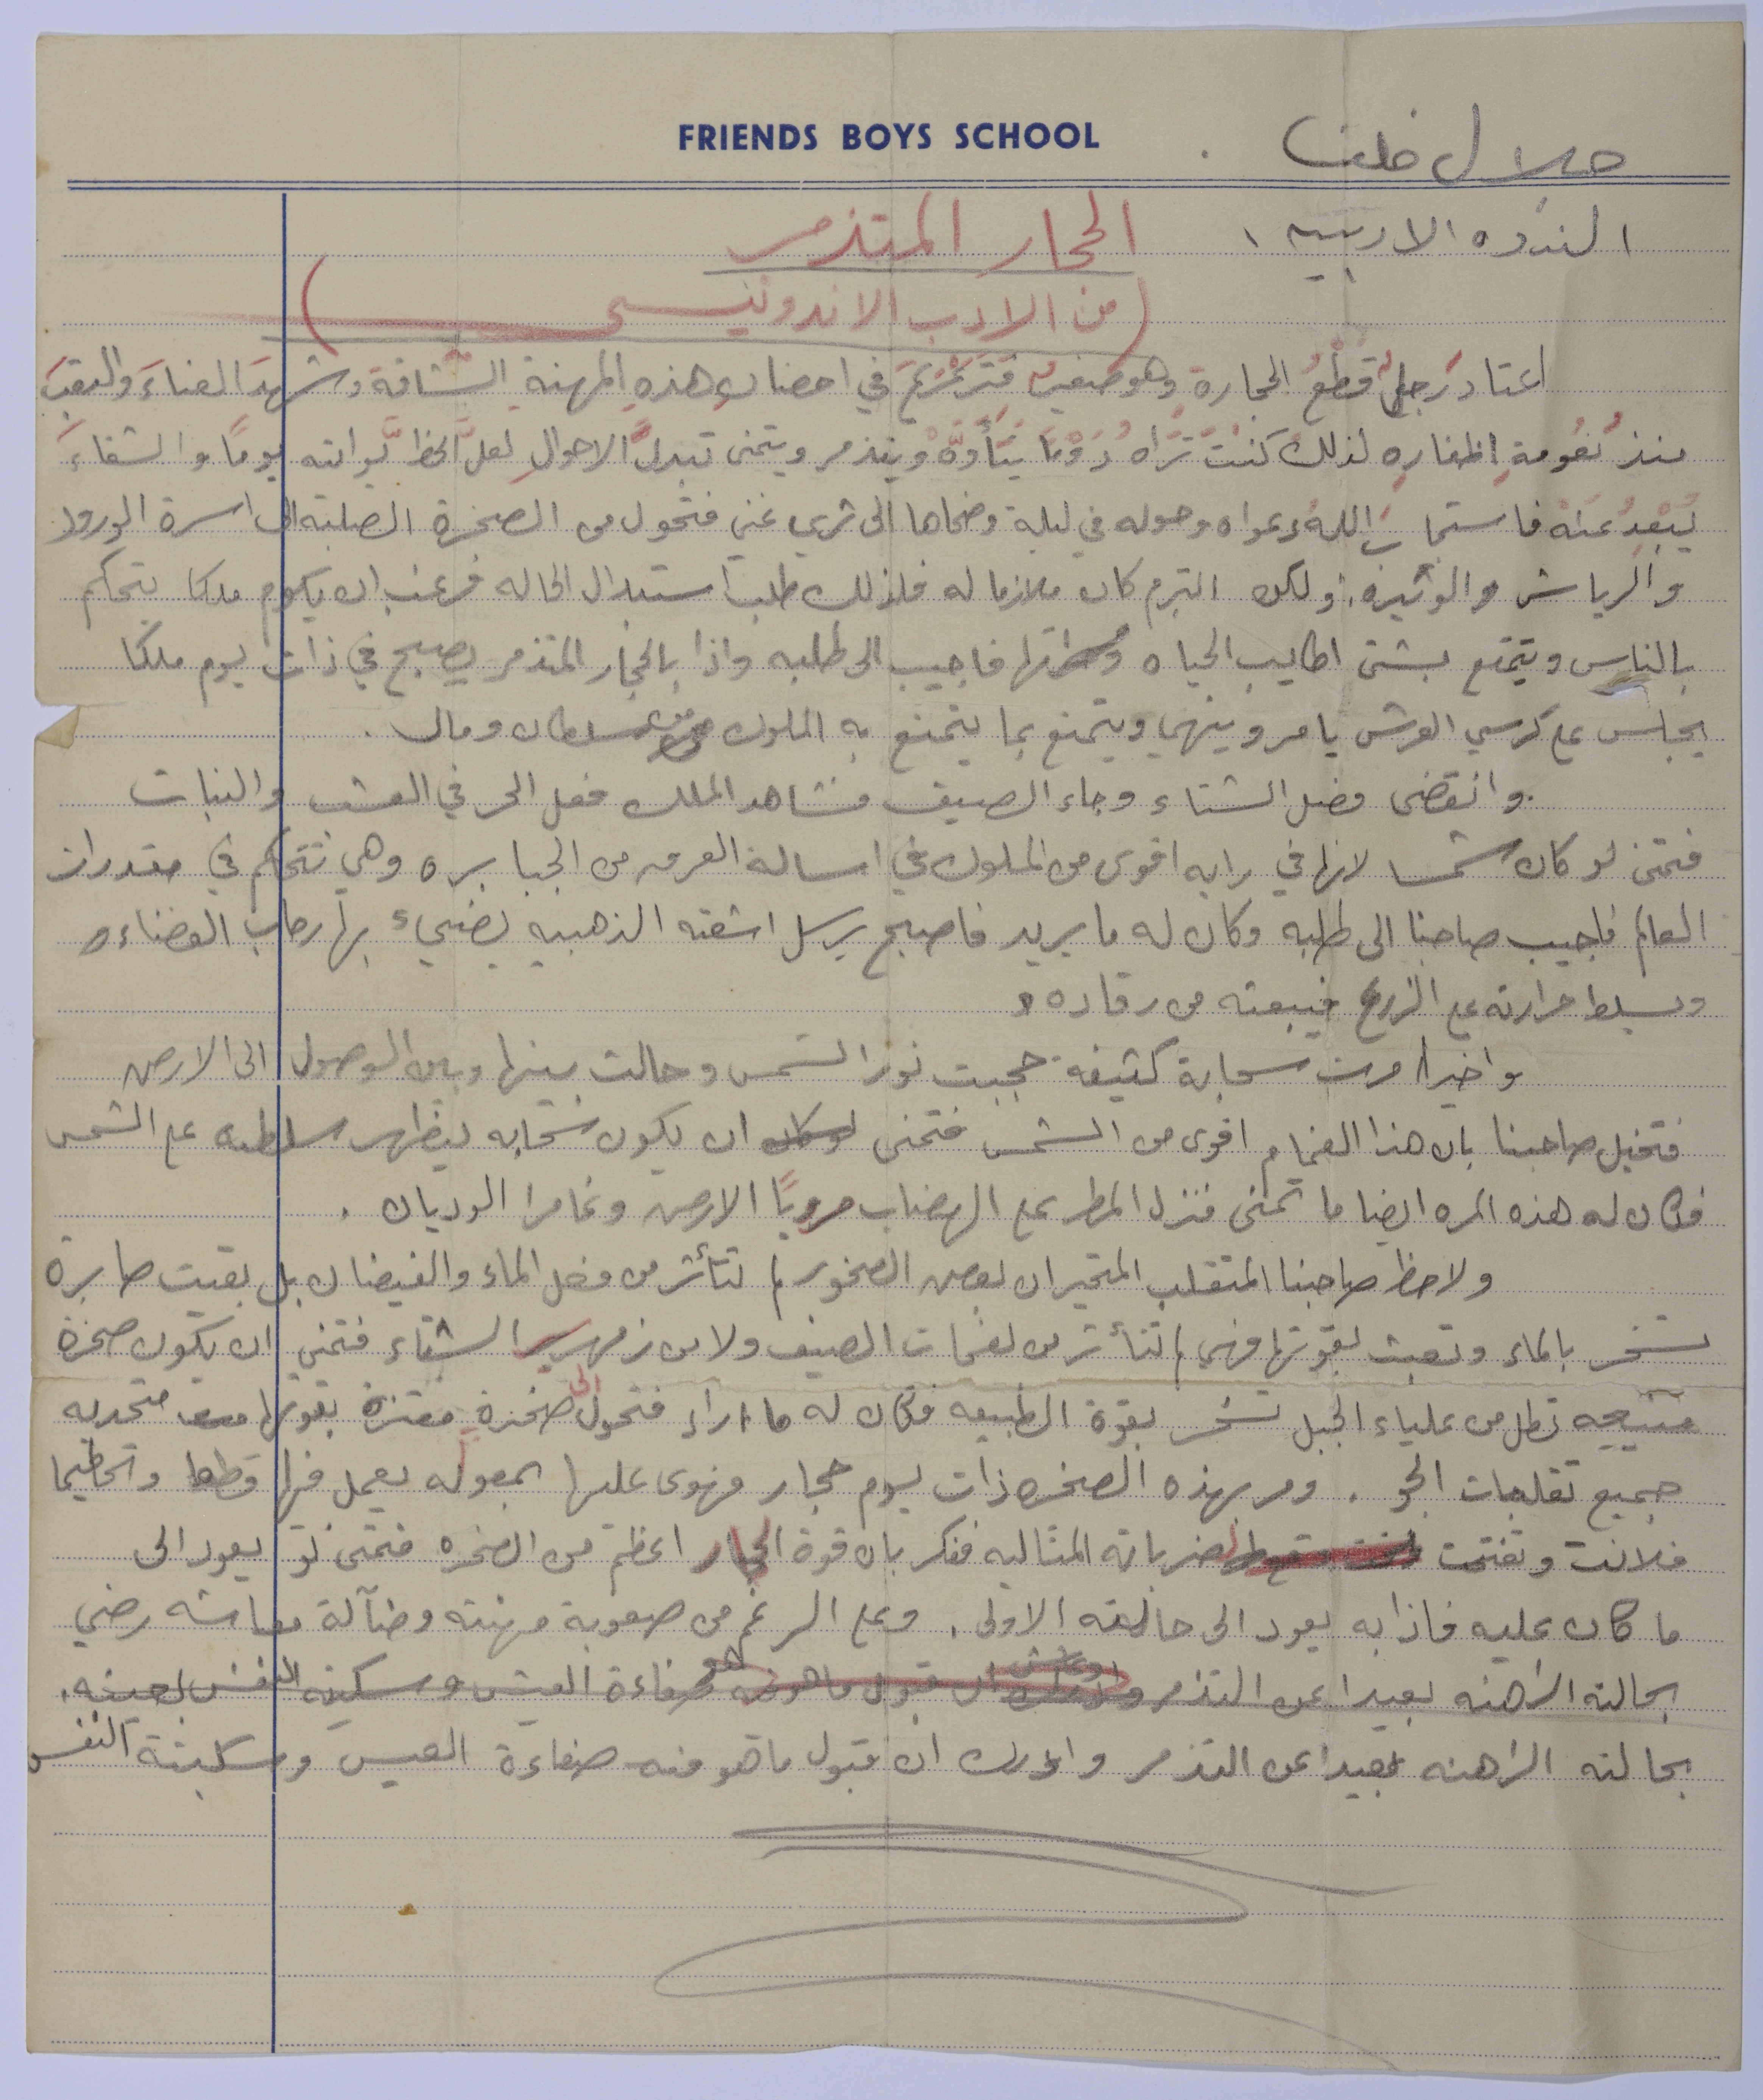 FRIENDS BOYS SCHOOL
جلال خلف
الندوه الادبيه
الحجار المتذمر
(من الادب الاندونيسي)
اعتاد رجل قطع الحجارة وهو صغير فترعرع في احضان هذه المهنة الشاقة وشهد العناء والتعب
منذ نعومة اظفاره لذلك كنت تراه دوما يتأوه ويتذمر ويتمنى تبدل الاحوال لعل الحظ يواتيه يوما والشقاء
يبعد عنه فاستجاب الله دعواه وحوله في ليلة وضحاها الى ثري غني فتحول من الصخرة الصلبة الى اسرة الورود
والرياش والوثيرة. ولكن التبرم كان ملازما له فلذلك طلب استبدال الحاله فرغب ان يكون ملكا يتحكم
بالناس ويتمتع بشتى اطايب الحياه فاجيب الى طلبه واذا بالحجار المتذمر يصبح في ذات يوم ملكا
يجلس على كرسي العرش يامر وينهي ويتمتع بما يتمتع به الملوك من سلطان ومال.
وانقضى فصل الشتاء وجاء الصيف فشاهد الملك فعل الحر في العشب والنبات
فتمنى لو كان شمسا لانها في رايه اقوى من الملوك في اسالة العرق من الجبابره وهي تتحكم في مقدرات
العالم فاجيب صاحبنا الى طلبه وكان له ما يريد فاصبح يرسل اشعته الذهبيه يضيء بها رحاب الفضاء و
ويسلط حرارته على الزرع فيبعثه من رقاده و
واخيرا مرت سحابة كثيفة حجبت نور الشمس وحالت بينها وبين الوصول الى الارض
فتخيل صاحبنا بان هذا الغمام اقوى من الشمس فتمنى لو كان ان يكون سحابه ليظهر سلطته على الشمس
فكان له هذه المره ايضا ما تمنى فنزل المطر على الهضاب مرويا الارض وغامرا الوديان.
ولاحظ صاحبنا المتقلب المتحير ان بعض الصخور لم تتأثر من فعل الماء والفيضان بل بقيت صابرة
تسخر بالماء وتعبث بقوتها فهي لم تتأثر من لفحات الصيف ولا من زمهرير الشتاء فتمنى ان يكون صخرة
تطل من علياء الجبل تسخر بقوة الطبيعه فكان له ما اراد فتحول الى صخرة معتزة بقوتها متحديه
جميع تقلبات الجو. ومر بهذه الصخره ذات يوم حجار فهوى عليها بمعوله يعمل فيها قطعا وتحطيما
فلانت وتفتتت لضرباته المتتاليه ففكر بان قوة الحجار اعظم من الصخره فتمنى لو يعود الى
ما كان عليه فاذا به يعود الى حالته الاولى. وعلى الرغم من صعوبة مهنته وضآلة معاشه رضي
بحالته الراهنه بعيدا عن التذمر وادرك ان قبول ما هو فيه هو صفاءة العيش وسكينه النفس بعينه.
بحالته الراهنه بعيدا عن التذمر وادرك ان قبول ما هو فيه صفاءة العيس وسكينة النفس